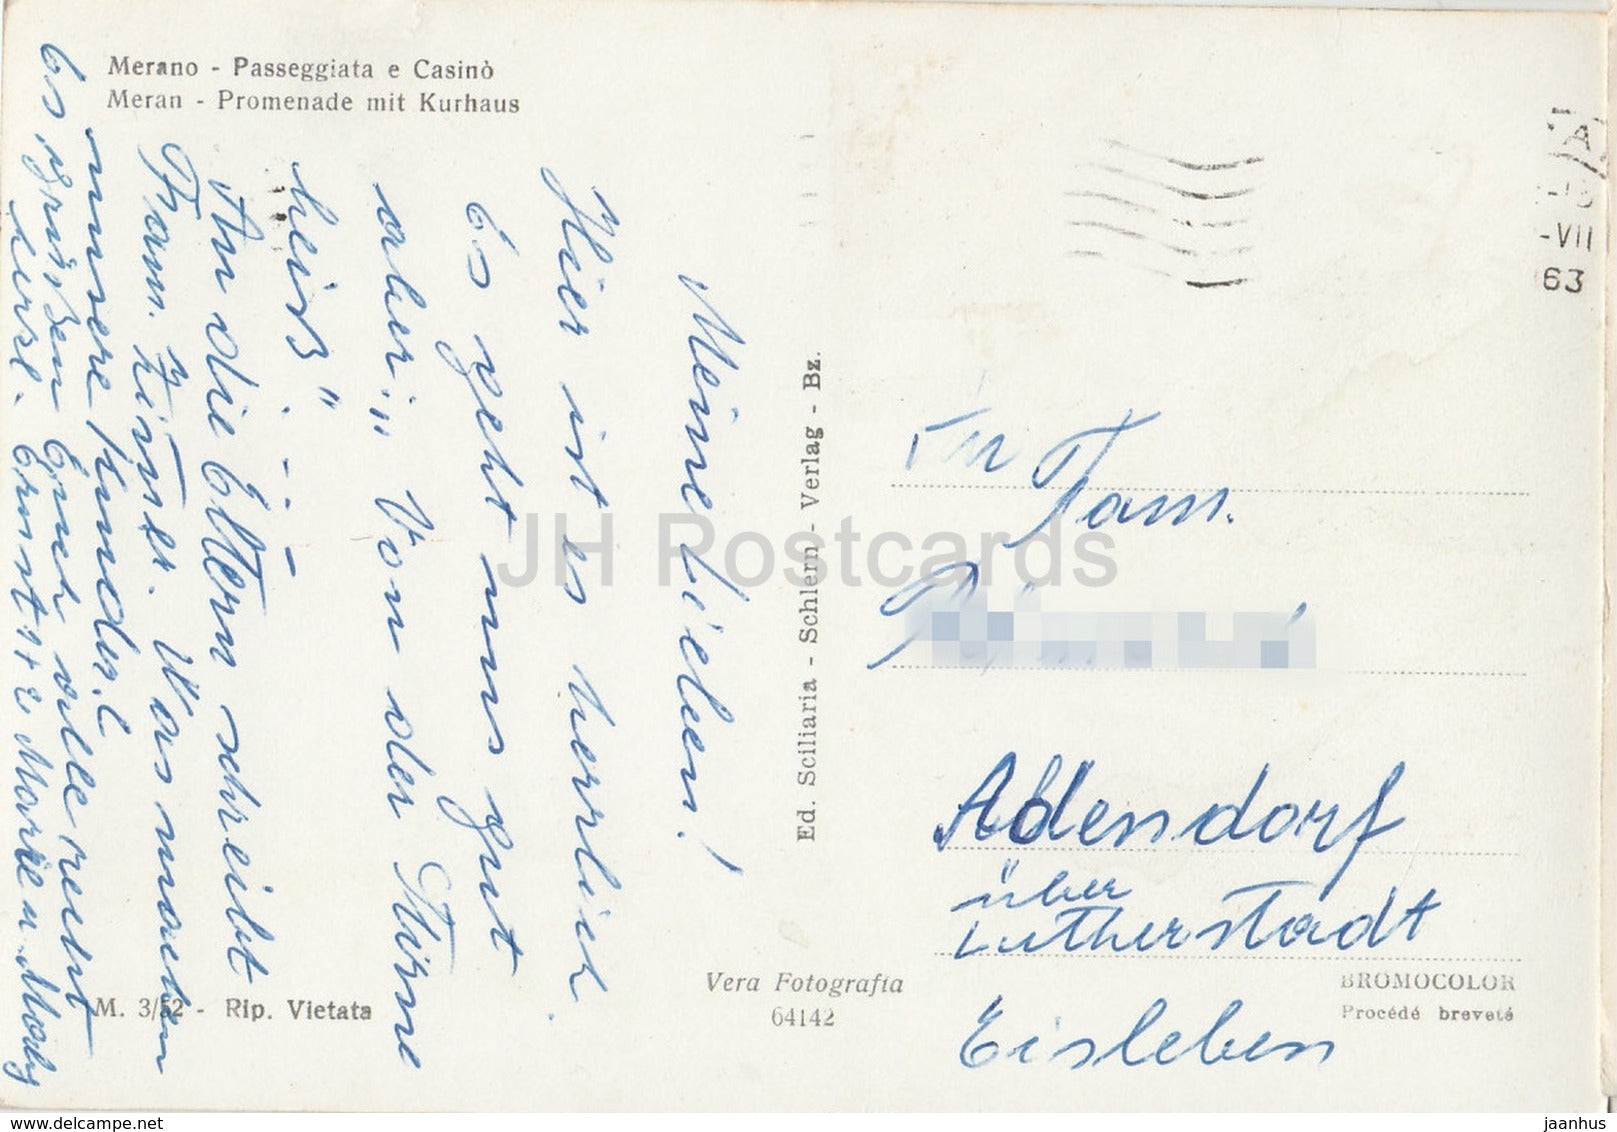 Merano - Passeggiata e Casinò
Meran - Promenade mit Kurhaus
Meine Lieben!
Hier ist es herrlich.
Es geht uns gut
aber „Von der Stirne
heiß" . - - -
An die Eltern schreibt
Fam. Was machen
unsere Hunderl
Es grüßen Euch alle recht
herzl. Ernst Marie u. Mady
Ed. Sciliaria - Schlern - Verlag - Bz.
M. 3/52 - Rip. Vietata
Vera Fotografia
64142
BROMOCOLOR
Procédé breveté
-VII
63
An
Fam.
Adendorf
über
Lutherstadt
Eisleben
JH Postcards
delcampe.net
jaanhus